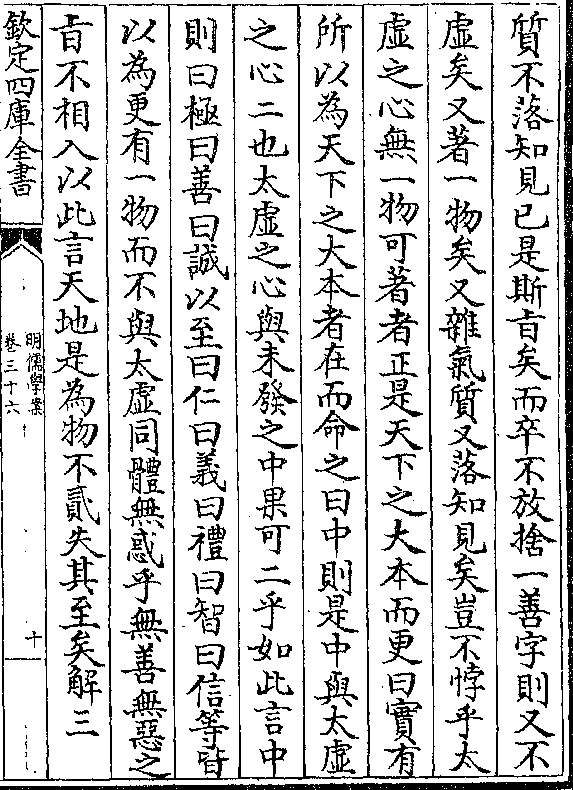 質不落知見已是斯旨矣而卒不放捨一善字則又不
虛矣又著一物矣又雜氣質又落知見矣豈不悖乎太
虛之心無一物可著者正是天下之大本而更曰實有
所以為天下之大本者在而命之曰中則是中與太虛
之心二也太虛之心與未發之中果可二乎如此言中
則曰極曰善曰誠以至曰仁曰義曰禮曰智曰信等皆
以為更有一物而不與太虛同體無惑乎無善無惡之
旨不相入以此言天地是為物不貳失其至矣解三
欽定四庫全書
明儒學案
卷三十六
十